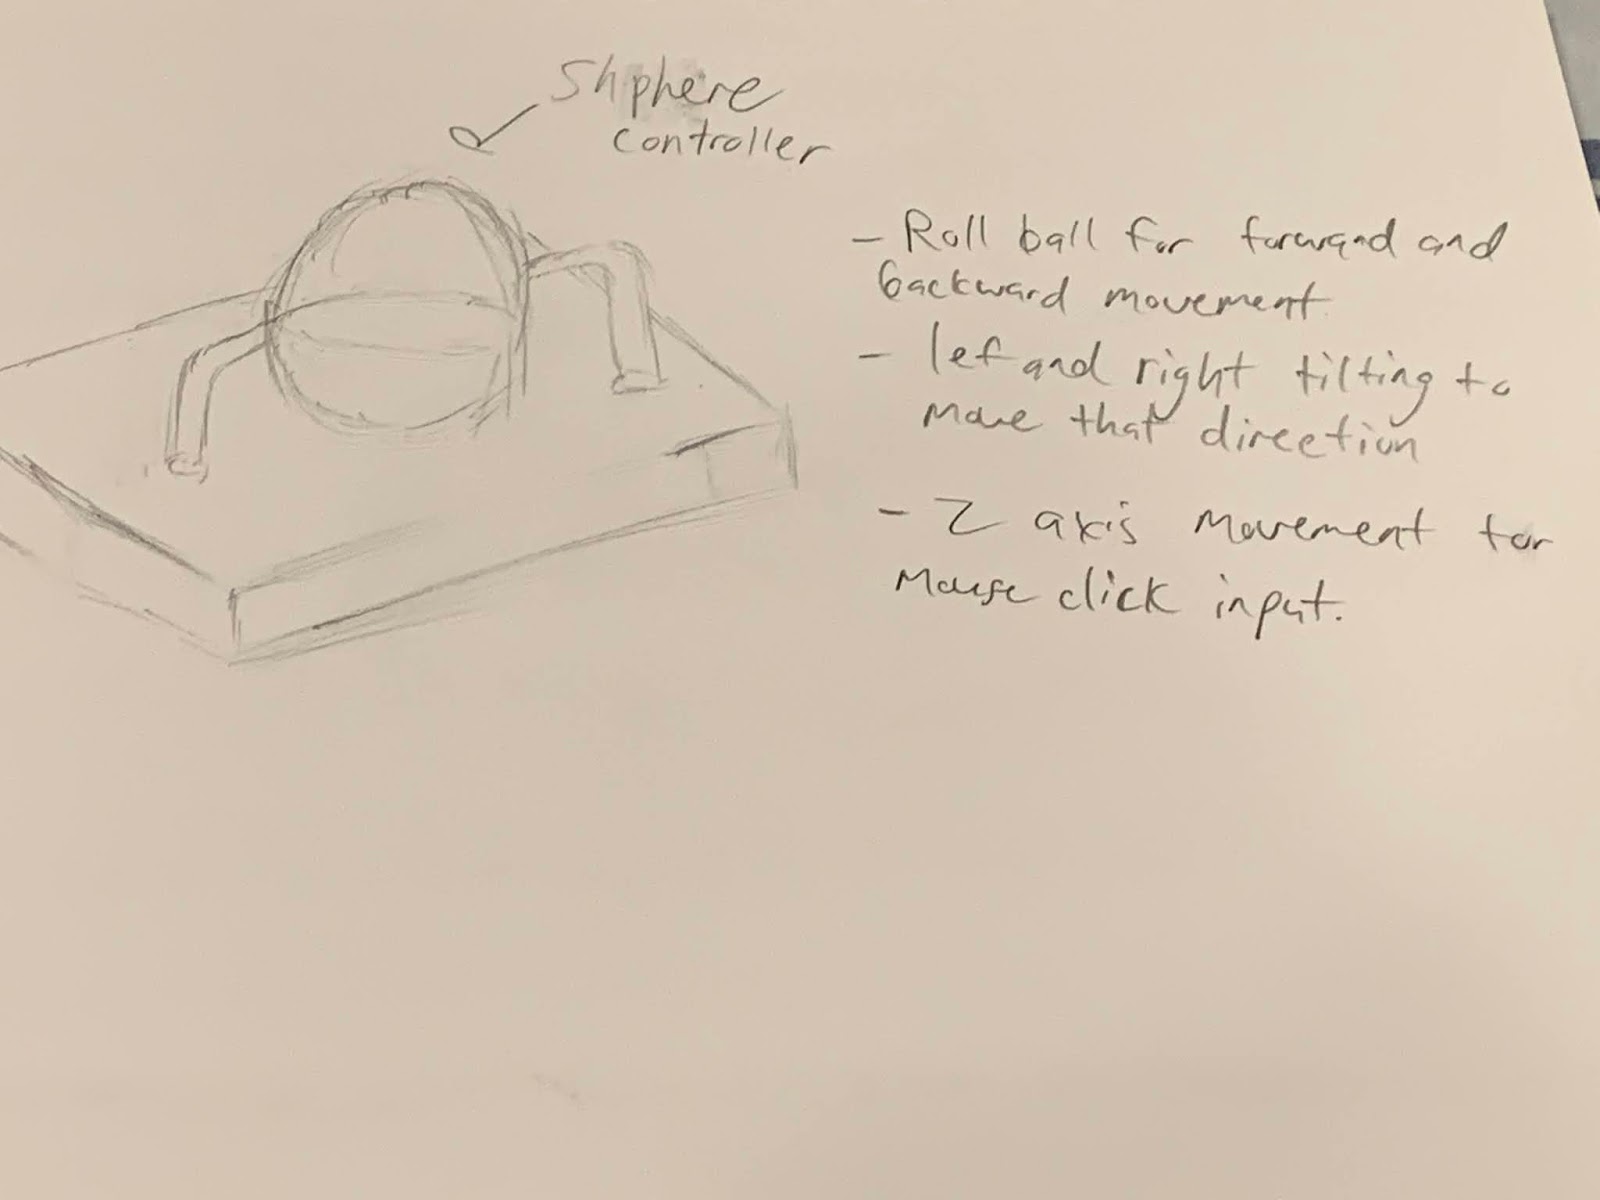 Shphere
controller
- Roll ball for forward and
backward movement
- lef and right tilting to
move that direction
- Z axis movement for
mouse click input.